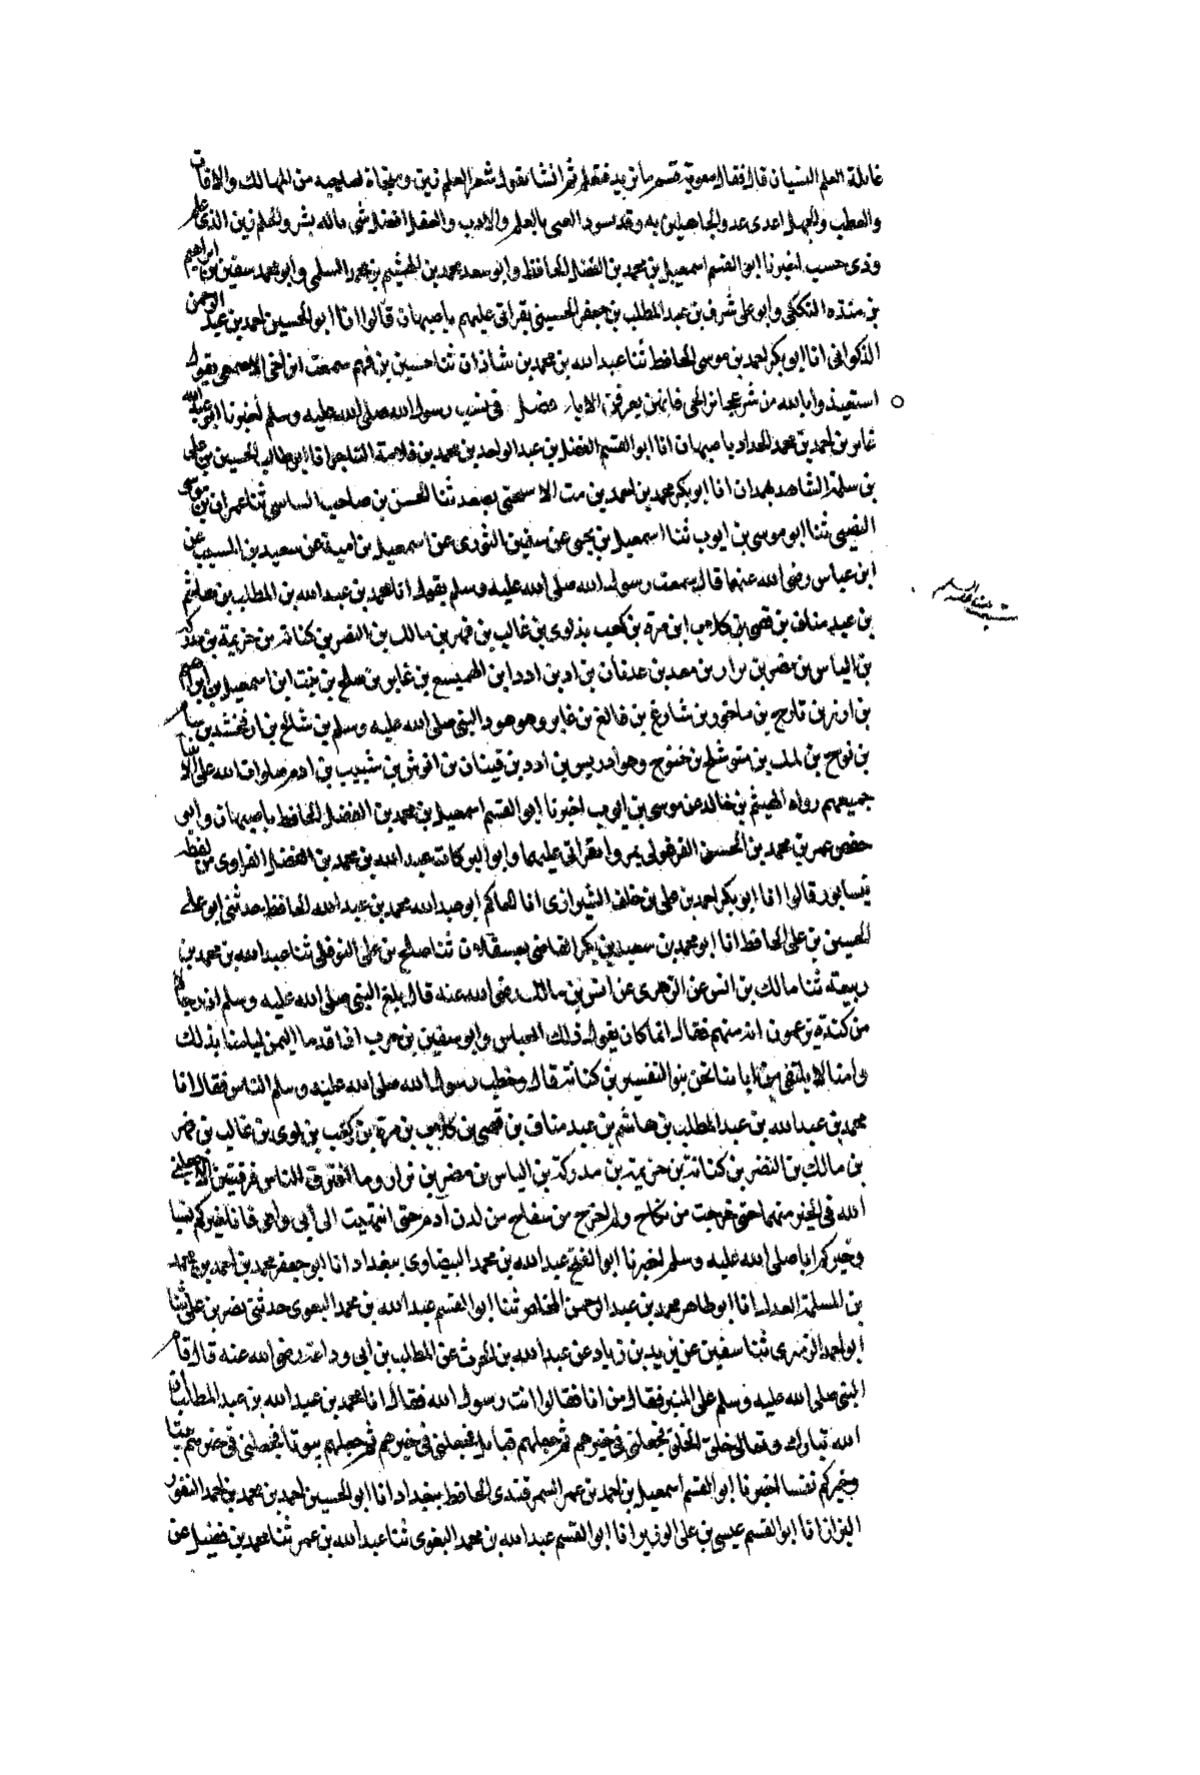 غائلة العلم النسيان قال فقال معوية قسم ما تريد فقلم ثم انشا يقول شعر العلم زين ومنجاة لصاحبه من المهالك والافات
والعطب والجهل اعدى عدو الجاهلين به وقد يسود الفتى بالعلم والادب والعقل افضل شي ماله بشر والحلم زين الذي علم
وذى حسب اخبرنا ابو القسم اسمعيل بن محمد بن الفضل الحافظ وابو سعد محمد بن الهيثم بن محمد السلمى وابو محمد سفين بن ابراهيم
بن منده وابو على شرف بن عبد المطلب بن جعفر الحسينى بقراتى عليهم باصبهان قالوا انا ابو الحسين احمد بن عبد الرحمن
الذكوانى انا ابو بكر احمد بن موسى الحافظ ثنا عبد الله بن محمد بن شاذان ثنا حسين بن فهم سمعت ابن اخى الاصمعى يقول
استعيذوا بالله من شر عجائز الحى فانهن يعرفن الابا فصل فى نسب رسول الله صلى الله عليه وسلم اخبرنا ابو عبد الله
بن احمد بن محمد الحداد باصبهان انا ابو القسم الفضل بن عبد الواحد بن محمد بن التاجر انا ابو طالب الحسين بن على
بن سلمة الشاهد بهمدان انا ابو بكر محمد بن احمد بن مت الاسحقى بصغد ثنا الحسن بن صاحب الساسى ثنا عمران بن موسى
النصيبى ثنا ابو موسى بن ايوب ثنا اسمعيل بن يحيى عن سفين الثورى عن اسمعيل بن امية عن سعيد بن المسيب عن
ابن عباس رضى الله عنهما قال سمعت رسول الله صلى الله عليه وسلم يقول انا محمد بن عبد الله بن المطلب بن هاشم
بن عبد مناف بن قصى بن كلاب ابن مرة بن كعب بن لوى بن غالب بن فهر بن مالك بن النضر بن كنانة بن خزيمة بن مدركة
بن الياس بن مضر بن نزار بن معد بن عدنان بن اد بن ادد ابن الهميسع بن غابر بن صلح بن بنت ابن اسمعيل بن ابراهيم
بن ازر بن تارح بن ماخور بن شاروغ بن فالغ بن غابر وهو هود النبى صلى الله عليه وسلم بن شالخ بن ارفخشد بن سام
بن نوح بن لمك بن متوشلخ بن خنوخ وهو ادريس بن ادد بن قينان بن انوش بن شيث بن ادم صلوات الله على
جميعهم رواه الهيثم بن خالد عن موسى بن ايوب اخبرنا ابو القسم اسمعيل بن محمد بن الفضل الحافظ باصبهان وابو
حفص عمر بن محمد بن الحسن الفرغولى بمرو بقراتى عليهما وابو البركات عبد الله بن محمد بن الفضل الفراوى من لفظه
بنيسابور قالوا انا ابو بكر احمد بن على بن خلف الشيرازى انا الحاكم ابو عبد الله محمد بن عبد الله الحافظ حدثنى ابو على
الحسين بن على الحافظ انا ابو محمد بن سعيد بن بكر القاضى بعسقلان ثنا صالح بن على النوفلى ثنا عبد الله بن محمد بن
ربيعة ثنا مالك بن انس عن الزهرى عن انس بن مالك رضى الله عنه قال بلغ النبى صلى الله عليه وسلم ان رجالا
من كندة يزعمون انه منهم فقال انما كان يقول ذلك العباس وابو سفين بن حرب اذا قدما اليمن ليامنا بذلك
وانا لا ينتفى من ابائنا نحن بنو النضر بن كنانة قال وخطب رسول الله صلى الله عليه وسلم الناس فقال انا
محمد بن عبد الله بن عبد المطلب بن هاشم بن عبد مناف بن قصى بن كلاب بن مرة بن كعب بن لوى بن غالب بن فهر
بن مالك بن النضر بن كنانة بن خزيمة بن مدركة بن الياس بن مضر بن نزار وما افترق الناس فرقتين الا جعلنى
الله فى الخير منهما حتى خرجت من نكاح ولم اخرج من سفاح من لدن آدم حتى انتهيت الى ابى وامى فانا خيركم نسبا
وخيركم ابا صلى الله عليه وسلم اخبرنا ابو الفتح عبد الله بن محمد البيضاوى ببغداد انا ابو جعفر محمد بن احمد بن محمد
بن المسلمة العدل انا ابو طاهر محمد بن عبد الرحمن المخلص ثنا ابو القسم عبد الله بن محمد البغوى حدثنى نصر بن على ثنا
ابو احمد الزبيرى ثنا سفين عن يزيد بن زياد عن عبد الله بن الحرث عن المطلب بن ابى وداعة رضى الله عنه قال قام
النبى صلى الله عليه وسلم على المنبر فقال من انا فقالوا انت رسول الله فقال انا محمد بن عبد الله بن عبد المطلب ان
الله تبارك وتعالى خلق الخلق فجعلنى فى خيرهم ثم جعلهم قبائل فجعلنى فى خيرهم ثم جعلهم بيوتا فجعلنى فى خيرهم بيتا
وخيركم نفسا اخبرنا ابو القسم اسمعيل بن احمد بن عمر السمرقندى الحافظ ببغداد انا ابو الحسين احمد بن محمد بن احمد النقور
البزاز انا ابو القسم عيسى بن على الوزير انا ابو القسم عبد الله بن محمد البغوى ثنا عبد الله بن عمر ثنا محمد بن فضيل عن